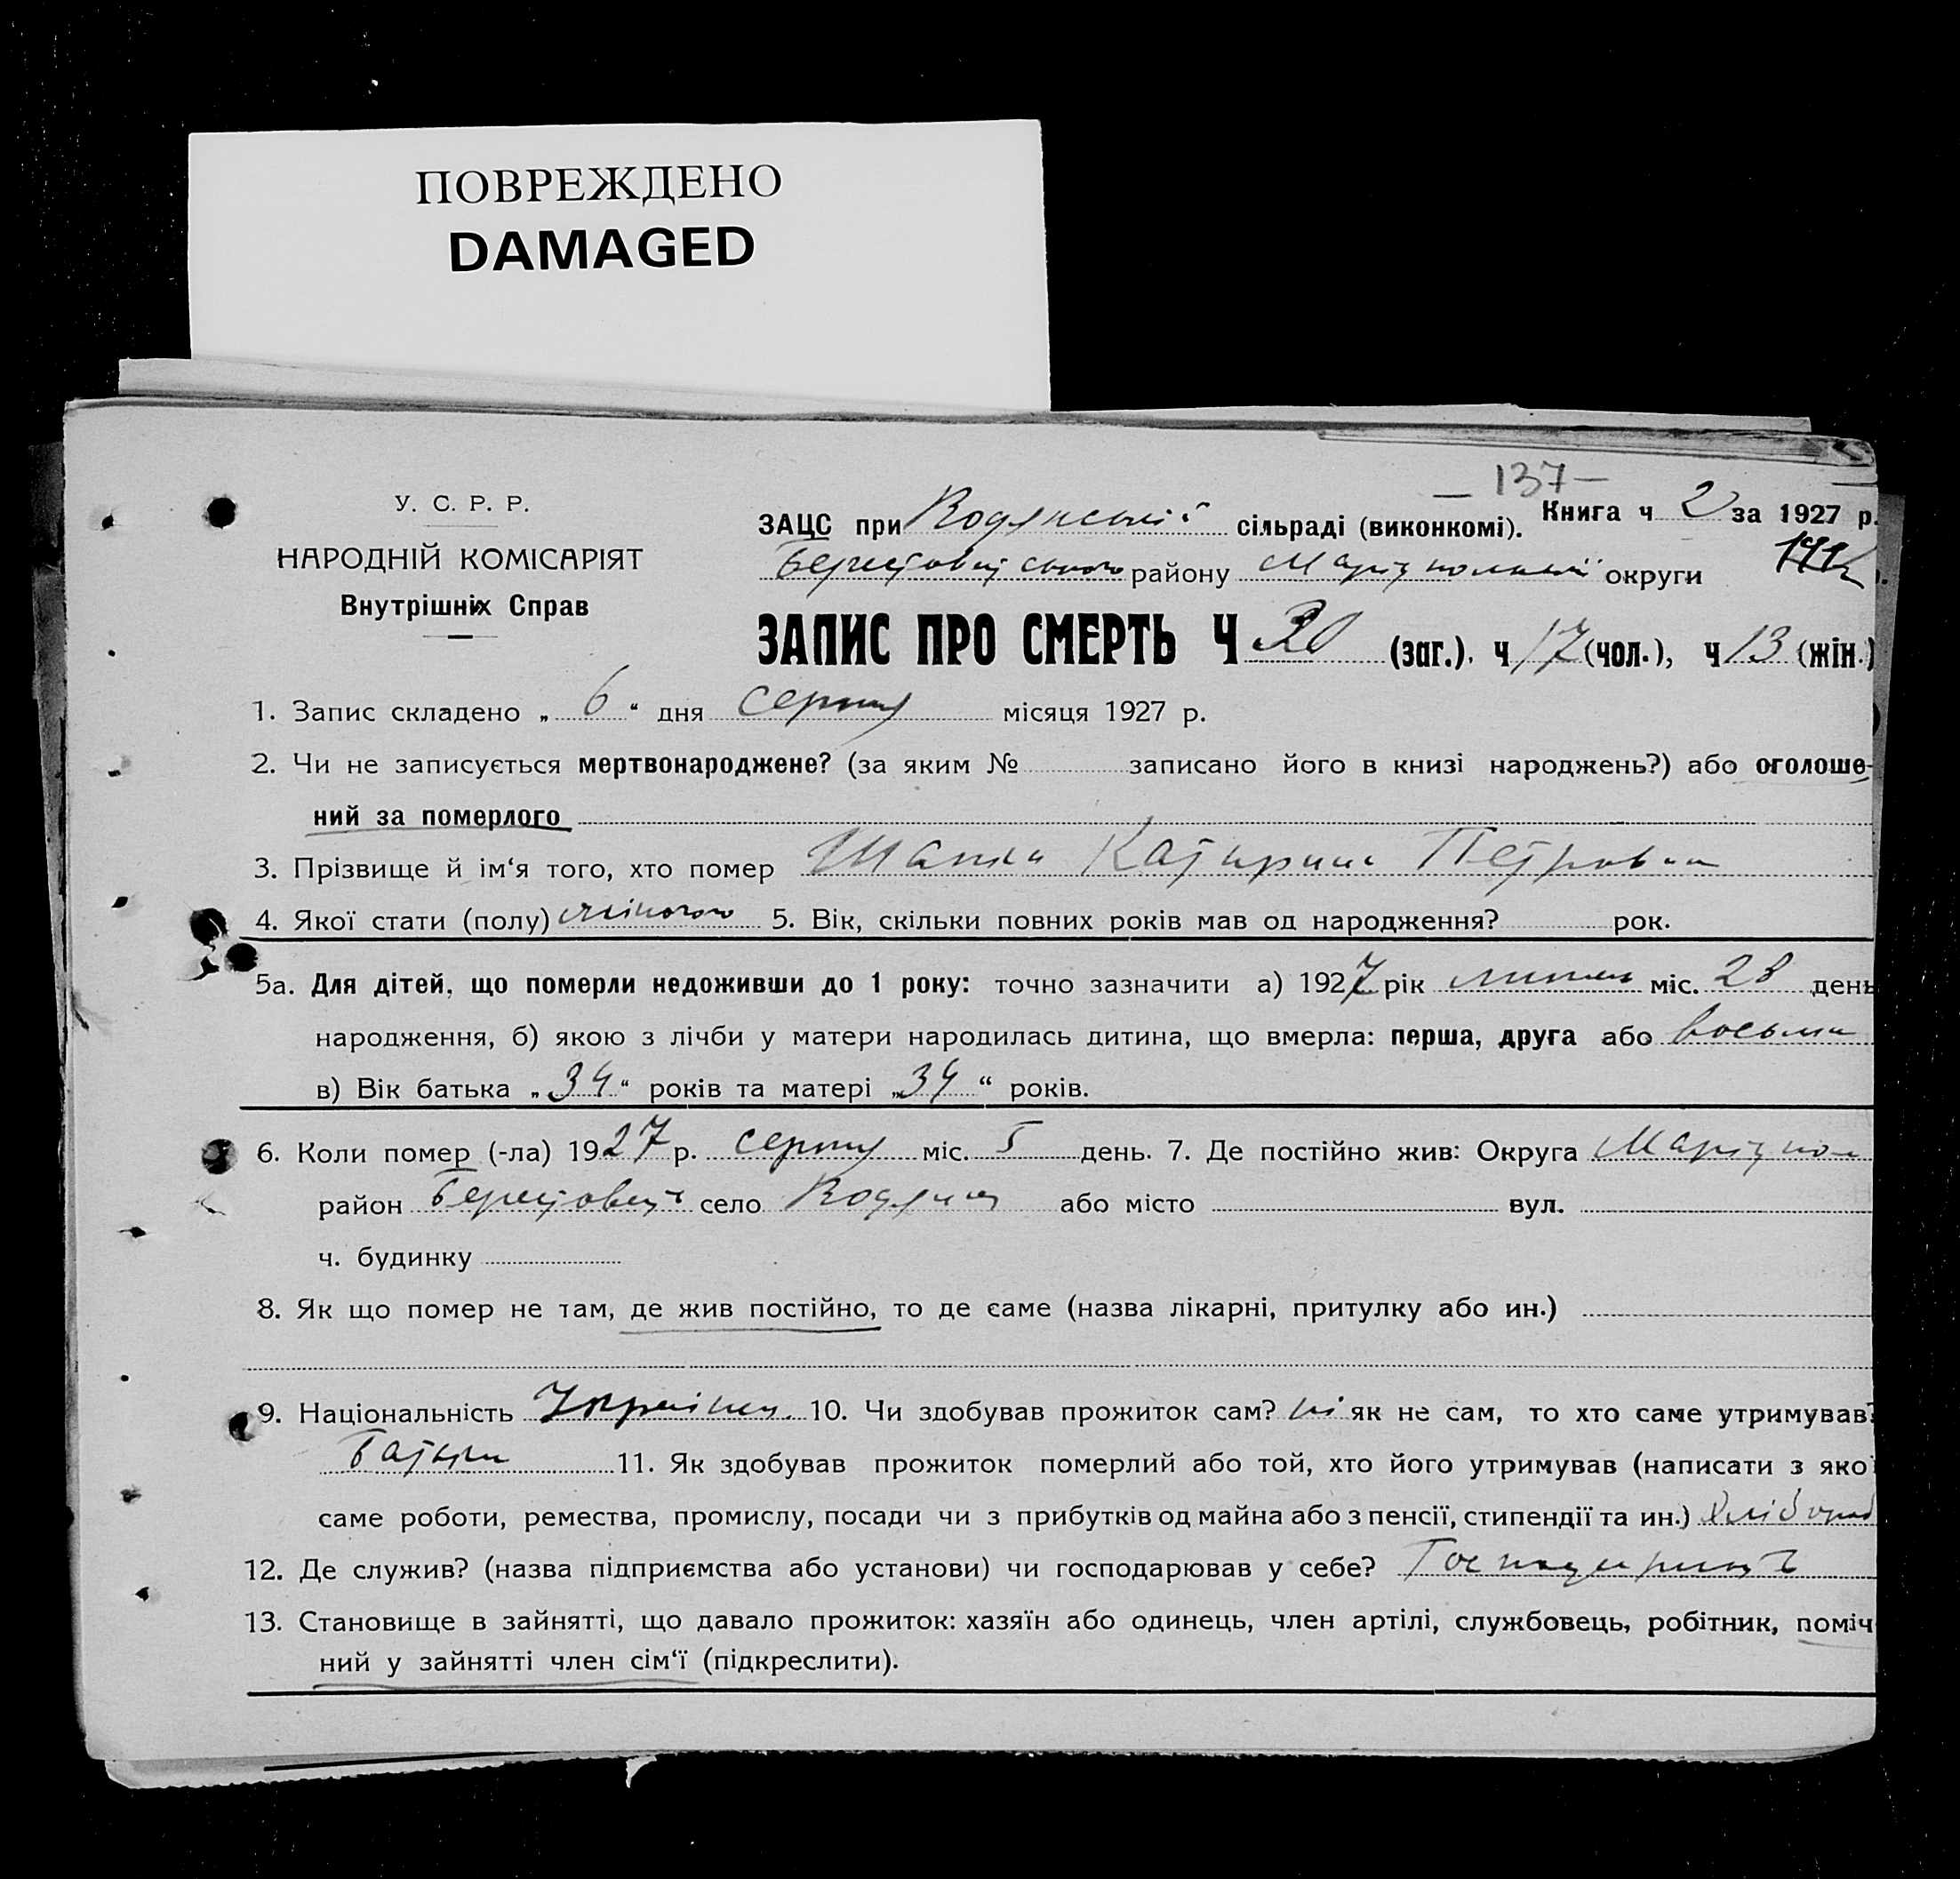 ПОВРЕЖДЕНО
DAMAGED
— 137 —
У. С. Р. Р.
НАРОДНІЙ КОМІСАРІЯТ
Внутрішніх Справ
ЗАЦС при Водянській сільраді (виконкомі). Книга ч 2 за 1927 р.
району округи
ЗАПИС ПРО СМЕРТЬ Ч 30 (заг.), ч 17 (чол.), ч 13 (жін.)
1. Запис складено „ 6 “ дня серпня місяця 1927 р.
2. Чи не записується мертвонароджене? (за яким № записано його в книзі народжень?) або оголоше-
ний за померлого
3. Прізвище й ім‘я того, хто помер Катирина Петровна
4. Якої стати (полу) жіночого 5. Вік, скільки повних років мав од народження? рок.
5а. Для дітей, що померли недоживши до 1 року: точно зазначити а) 1927 рік липень міс. 28 день
народження, б) якою з лічби у матери народилась дитина, що вмерла: перша, друга або восьма
в) Вік батька „ 34 “ років та матері „ 34 “ років.
6. Коли помер (-ла) 1927 р. серпня міс. 5 день. 7. Де постійно жив: Округа Маріупол
район село Водяна або місто вул.
ч. будинку
8. Як що помер не там, де жив постійно, то де саме (назва лікарні, притулку або ин.)
9. Національність 10. Чи здобував прожиток сам? ні як не сам, то хто саме утримував?
Батьки 11. Як здобував прожиток померлий або той, хто його утримував (написати з якої
саме роботи, ремества, промислу, посади чи з прибутків од майна або з пенсії, стипендії та ин.) Хлібороб
12. Де служив? (назва підприємства або установи) чи господарював у себе?
13. Становище в зайнятті, що давало прожиток: хазяїн або одинець, член артілі, службовець, робітник, поміч
ний у зайнятті член сім‘ї (підкреслити).